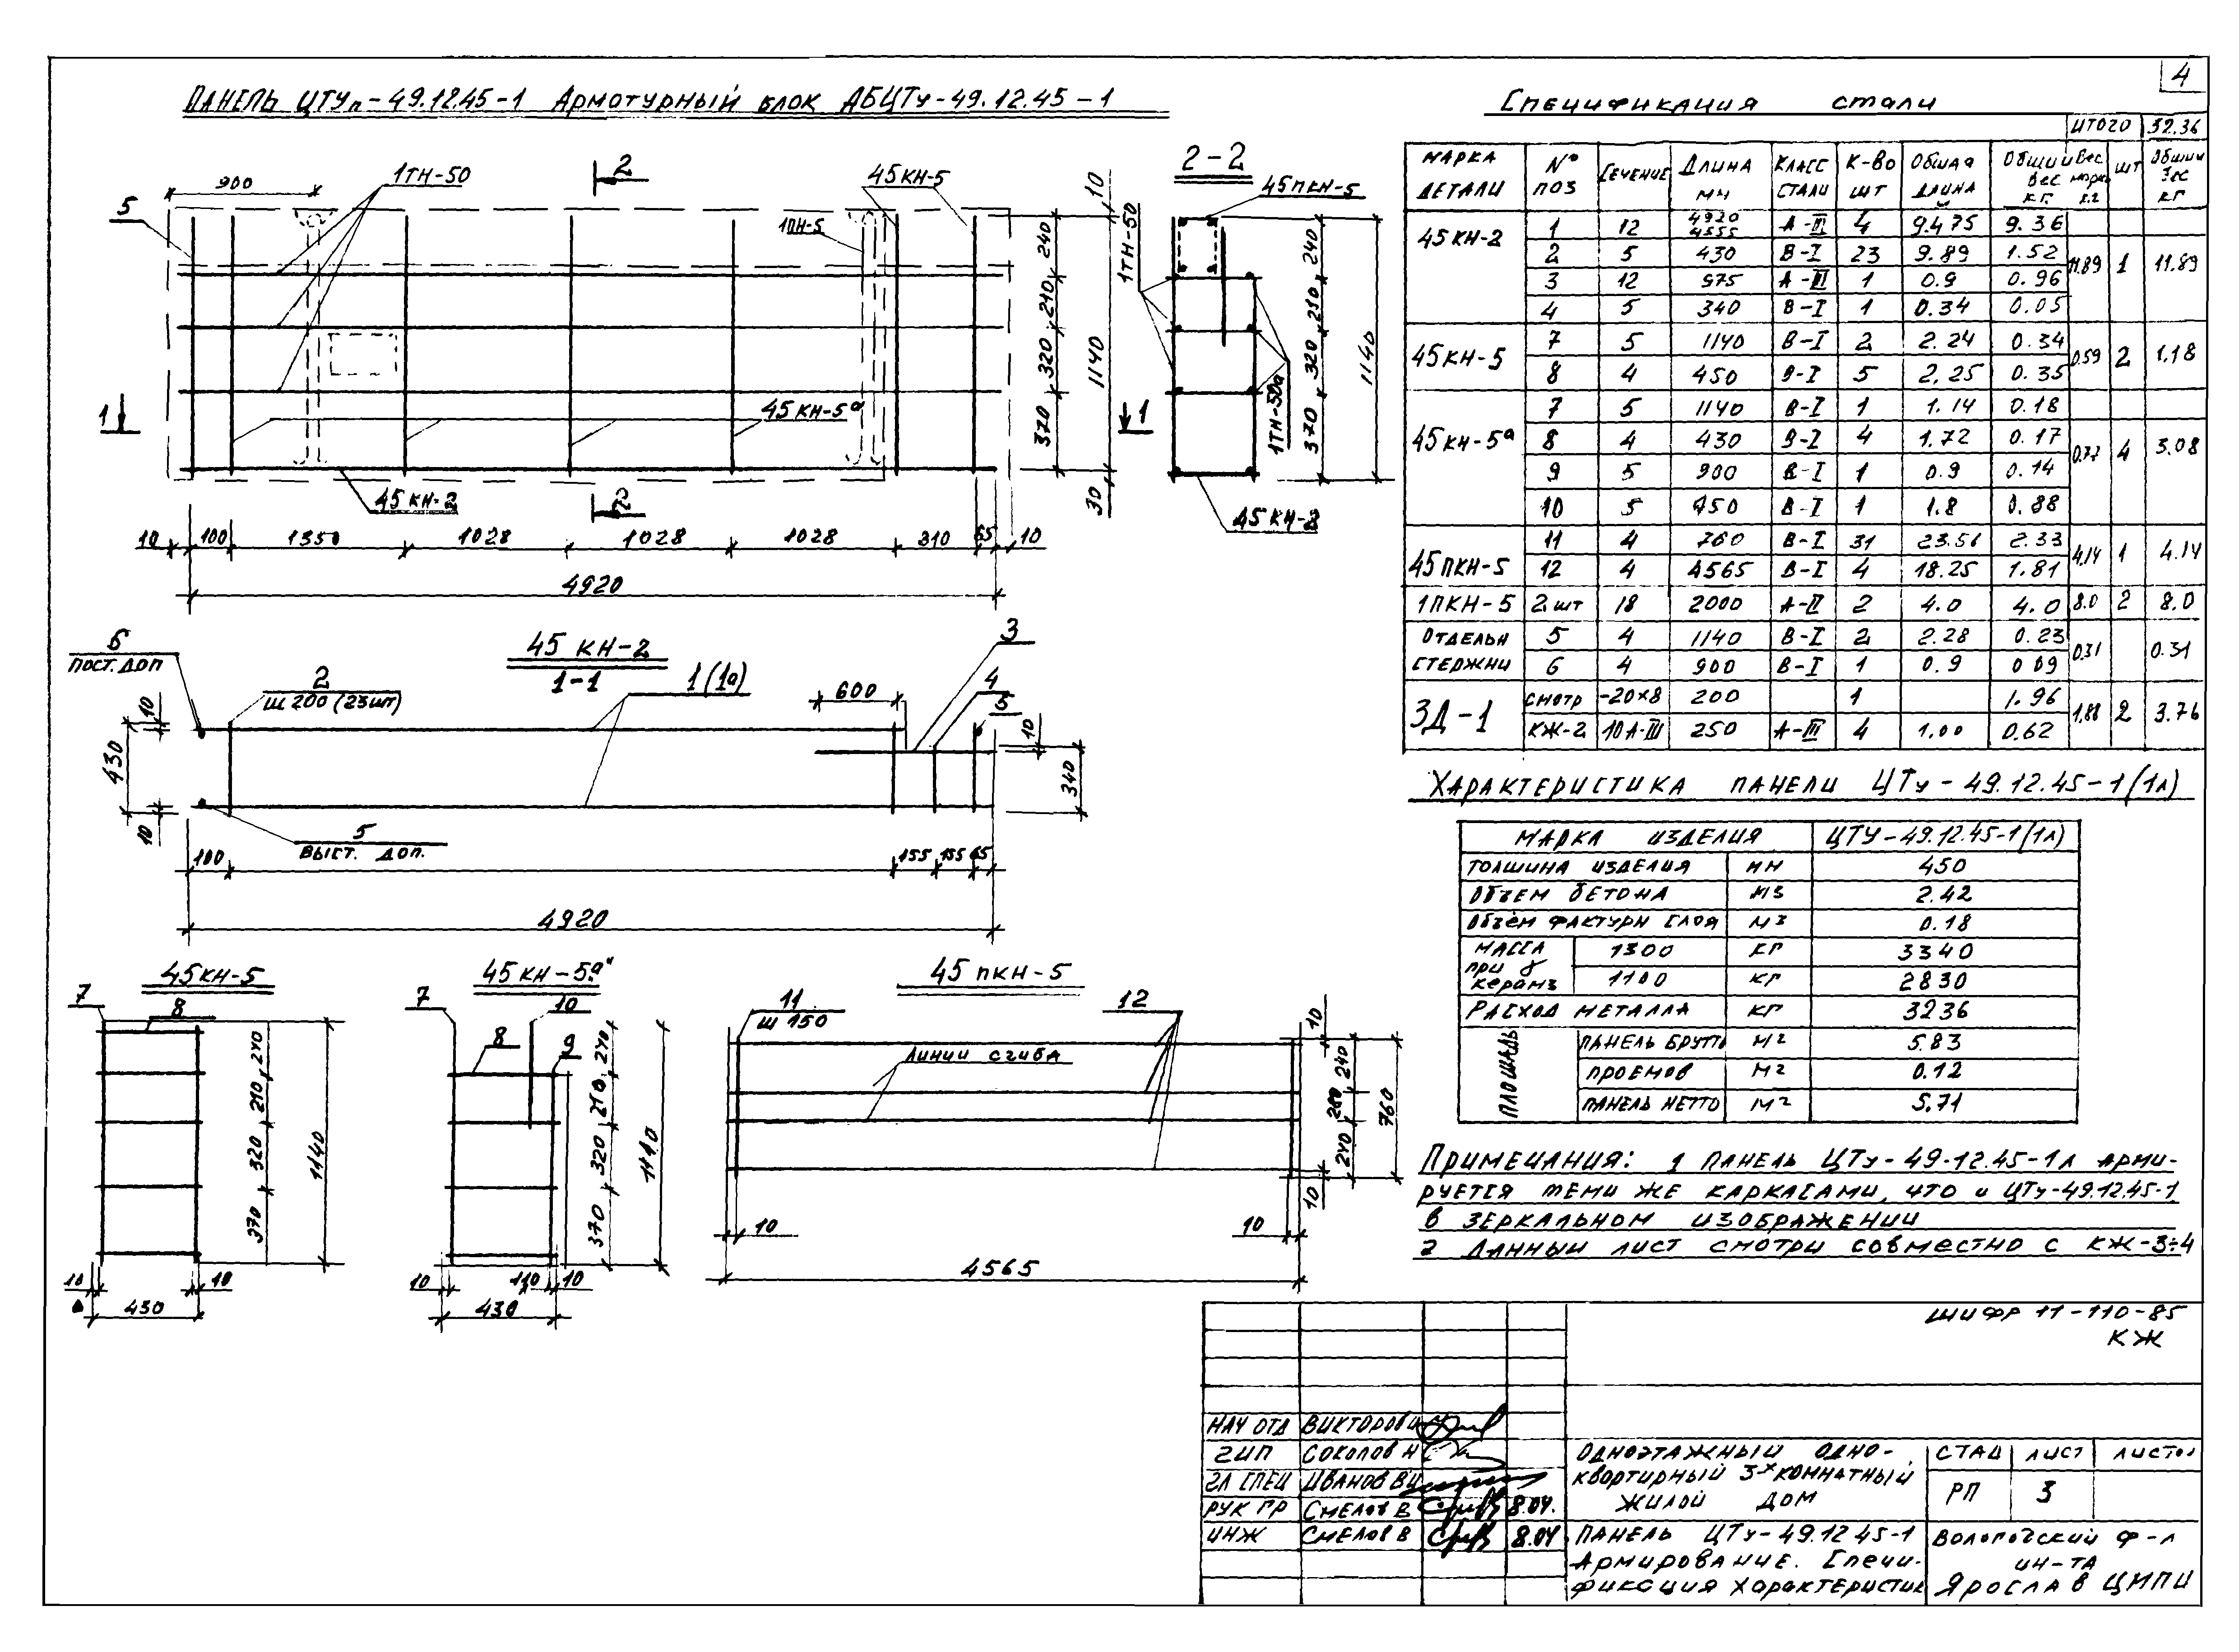 4
ПАНЕЛЬ ЦТУл-49.12.45-1 Арматурный блок АБЦТу-49.12.45-1
2
900
1ТН-50
45КН-5
5
1ПН-5
10
240
210
320
370
1140
30
1
45КН-5а
1
45 КН-2
2
10 100 1350 1028 1028 1028 310 65 10
4920
2-2
45ПКН-5
1ТН-50
240
210
320
370
1140
1ТН-50а
45КН-2
45 КН-2
1-1
6
ПОСТ. ДОП
2
Ш 200 (23шт)
1(1а)
600
3
4
5
10
430
10
10
340
5
ВЫСТ. ДОП.
100 155 155 65
4920
45КН-5
7
8
240
210
320
370
1140
10 10
430
45КН-5"а"
7
10
8
9
240
210
320
370
1140
10 110 10
430
45 ПКН-5
11
Ш 150
12
ЛИНИИ СГИБА
10
240
260
240
10
760
10 10
4565
Спецификация стали
ИТОГО 32.36
МАРКА ДЕТАЛИ N° ПОЗ СЕЧЕНИЕ ДЛИНА мм КЛАСС СТАЛИ К-ВО ШТ ОБЩАЯ ДЛИНА ОБЩИЙ ВЕС КГ. ВЕС марк кг ШТ ОБЩИЙ ВЕС КГ
45КН-2 1 12 4920 4555 А-III 4 9.475 9.36 11.89 1 11.89
2 5 430 В-I 23 9.89 1.52
3 12 975 А-III 1 0.9 0.96
4 5 340 В-I 1 0.34 0.05
45КН-5 7 5 1140 В-I 2 2.24 0.34 0.59 2 1.18
8 4 450 В-I 5 2.25 0.35
45КН-5а 7 5 1140 В-I 1 1.14 0.18 0.77 4 3.08
8 4 430 В-I 4 1.72 0.17
9 5 900 В-I 1 0.9 0.14
10 5 450 В-I 1 1.8 0.88
45ПКН-5 11 4 760 В-I 31 23.56 2.33 4.14 1 4.14
12 4 4565 В-I 4 18.25 1.81
1ПКН-5 2.шт 18 2000 А-II 2 4.0 4.0 8.0 2 8.0
ОТДЕЛЬН СТЕРЖНИ 5 4 1140 В-I 2 2.28 0.23 0.31 0.31
6 4 900 В-I 1 0.9 0 09
ЗД-1 СМОТР -20×8 200 1 1.96 1.88 2 3.76
КЖ-2 10А-III 250 А-III 4 1.00 0.62
Характеристика панели ЦТу-49.12.45-1(1л)
МАРКА ИЗДЕЛИЯ ЦТУ-49.12.45-1(1л)
ТОЛШИНА ИЗДЕЛИЯ ММ 450
ОБЪЕМ БЕТОНА М3 2.42
Объем ФАКТУРН СЛОЯ М3 0.18
МАССА при γ керамз 1300 КГ 3340
1100 КГ 2830
РАСХОД МЕТАЛЛА КГ 3236
ПЛОЩАДЬ ПАНЕЛЬ БРУТТО М2 5.83
ПРОЕМОВ М2 0.12
ПАНЕЛЬ НЕТТО М2 5.71
Примечания: 1 ПАНЕЛЬ ЦТу-49-12.45-1л арми-
руется теми же каркасами, что и ЦТу-49.12.45-1
в зеркальном изображении
2 Данный лист смотри совместно с КЖ-3÷4
ШИФР 11-110-85
КЖ
НАЧ ОТД ВИКТОРОВ
ГИП СОКОЛОВ Н
ГЛ СПЕЦ ИВАНОВ ВИ
РУК ГР СМЕЛОВ В 8.04.
ИНЖ СМЕЛОВ В 8.04
ОДНОЭТАЖНЫЙ ОДНО-
КВАРТИРНЫЙ 3хКОМНАТНЫЙ
ЖИЛОЙ ДОМ
СТАД ЛИСТ ЛИСТОВ
РП 3
ПАНЕЛЬ ЦТу-49.12 45-1
Армирование. Специ-
фикация характеристик
ВОЛОГОДСКИЙ Ф-Л
ИН-ТА
ЯРОСЛАВ ЦМПИ